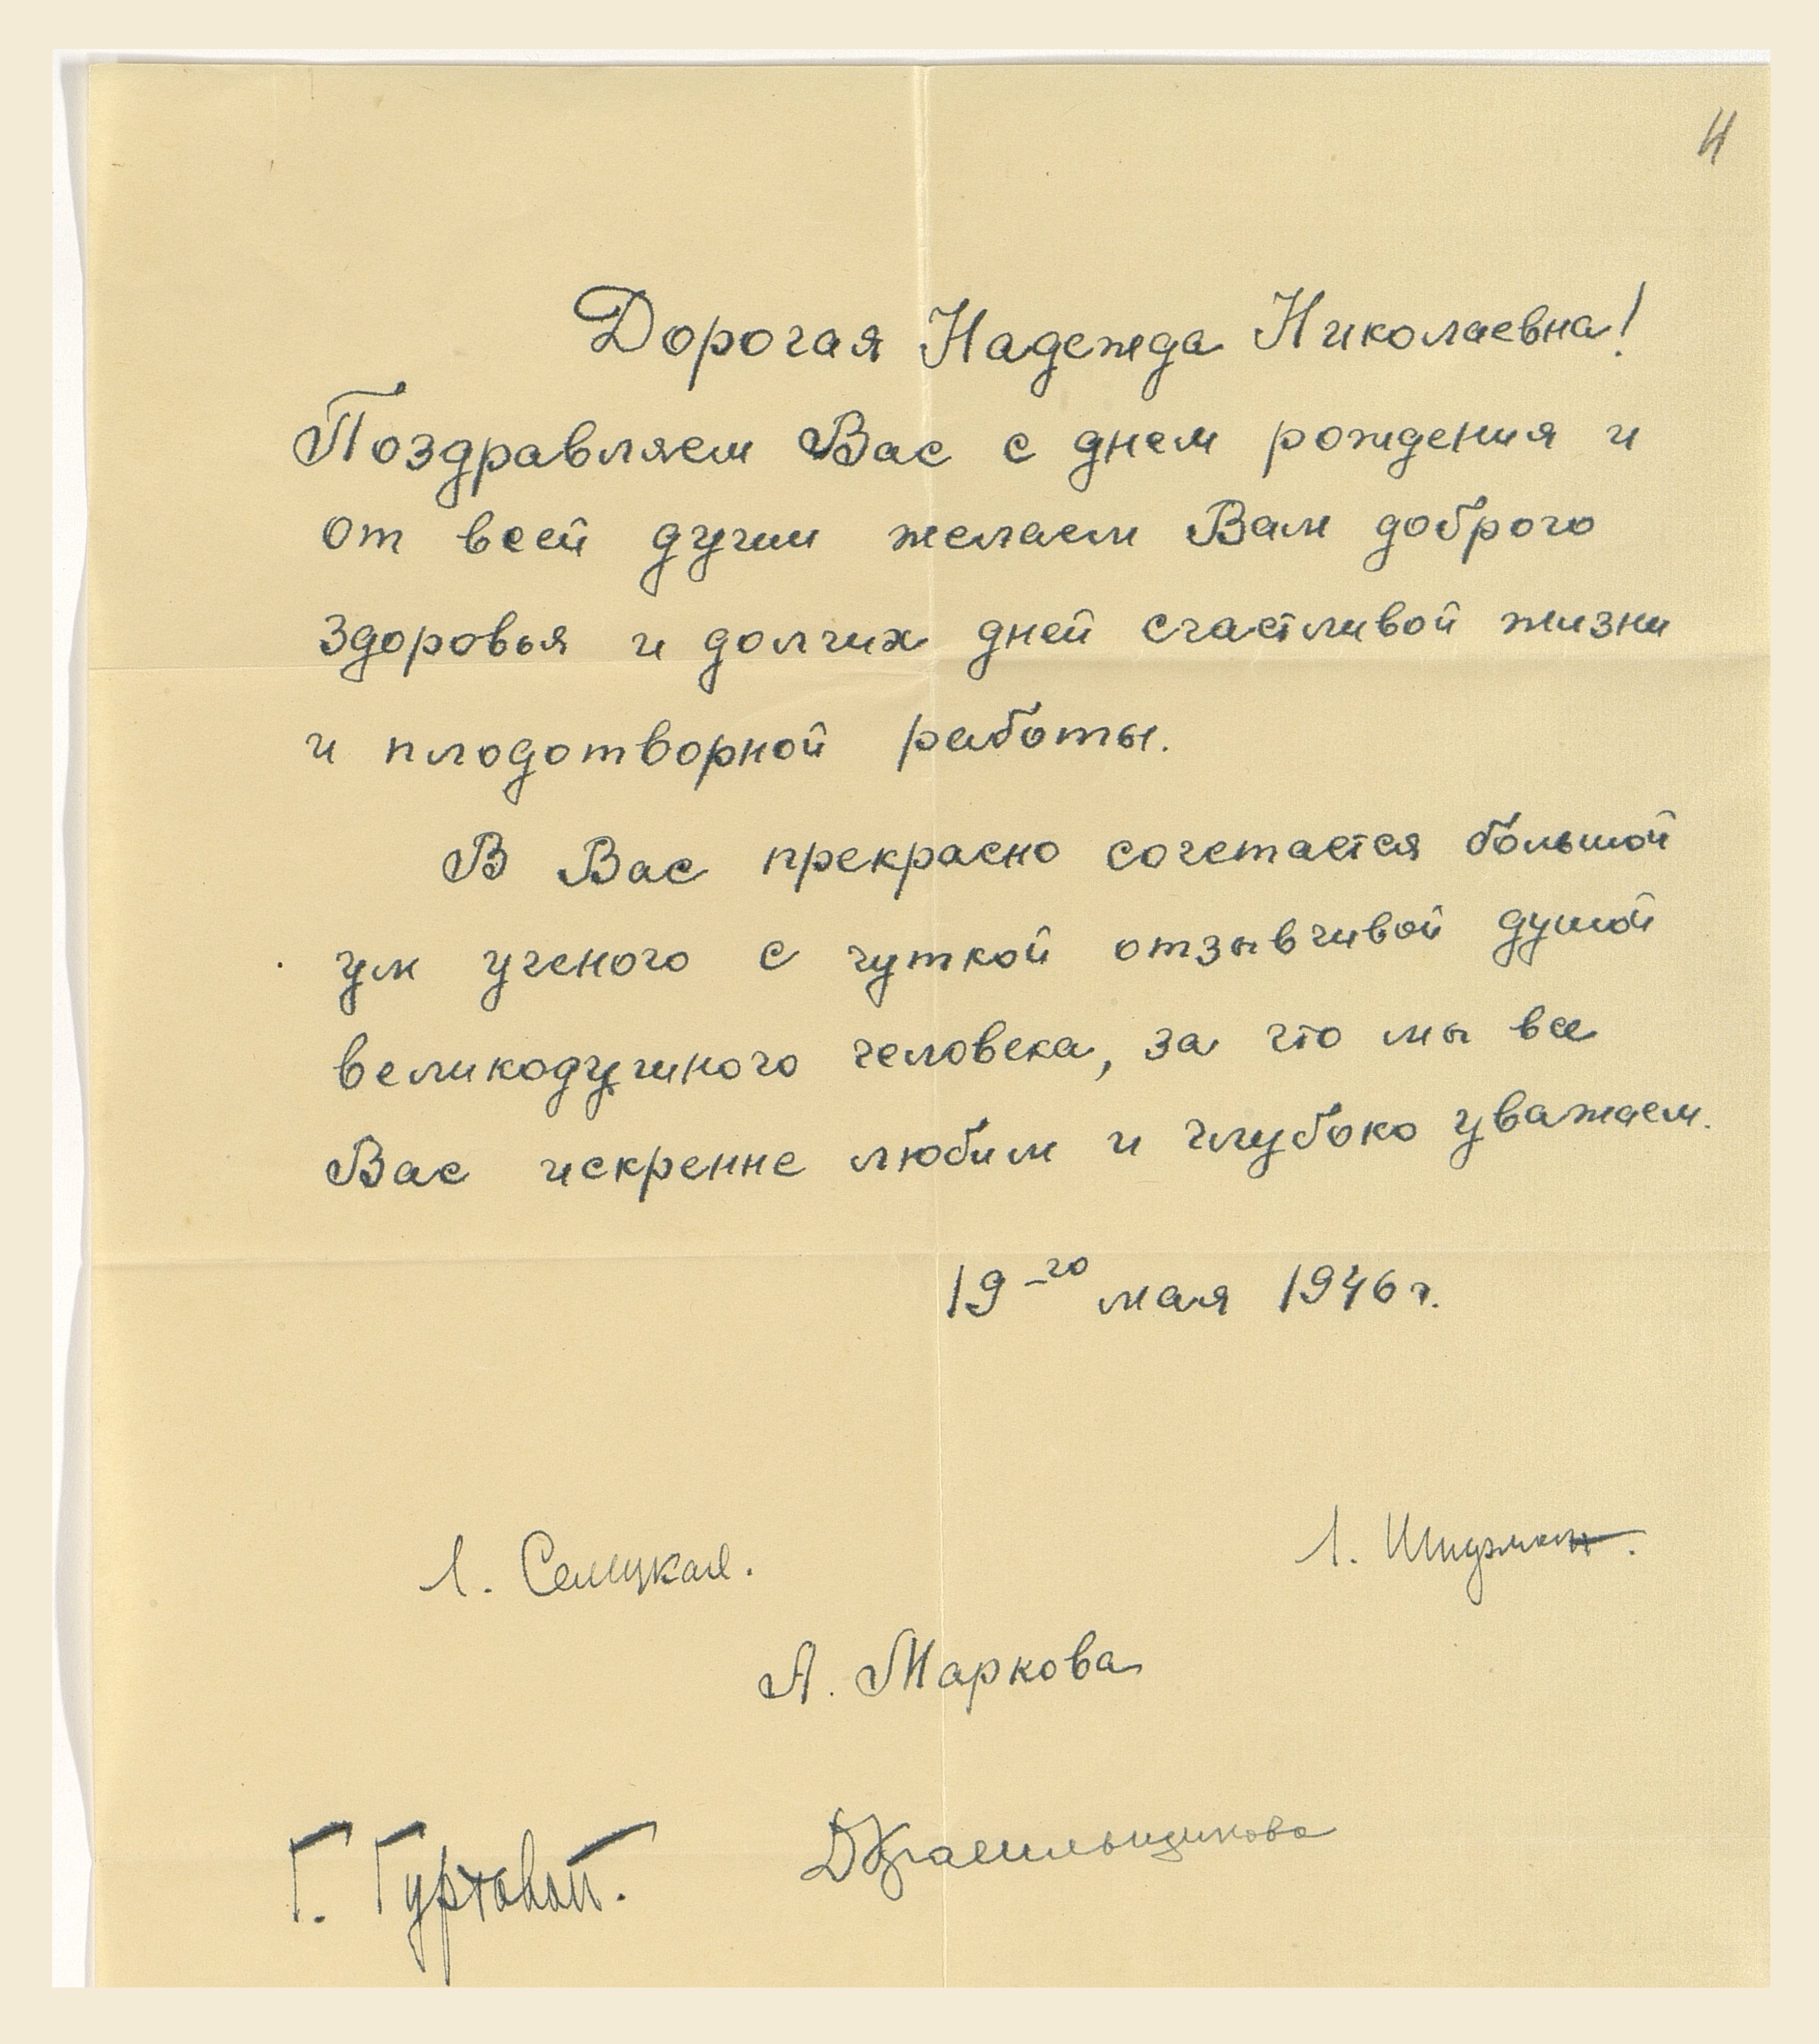 Дорогая Надежда Николаевна!
Поздравляем Вас с днем рождения и
от всей души желаем Вам доброго
здоровья и долгих дней счастливой жизни
и плодотворной работы.
В Вас прекрасно сочетается большой
ум ученого с чуткой отзывчивой душой
великодушного человека, за что мы все
Вас искренне любим и глубоко уважаем.
19-го мая 1946 г.
Л.
Л. Шидман.
А. Маркова
Г. Гуртовой.
ДКрасильщикова